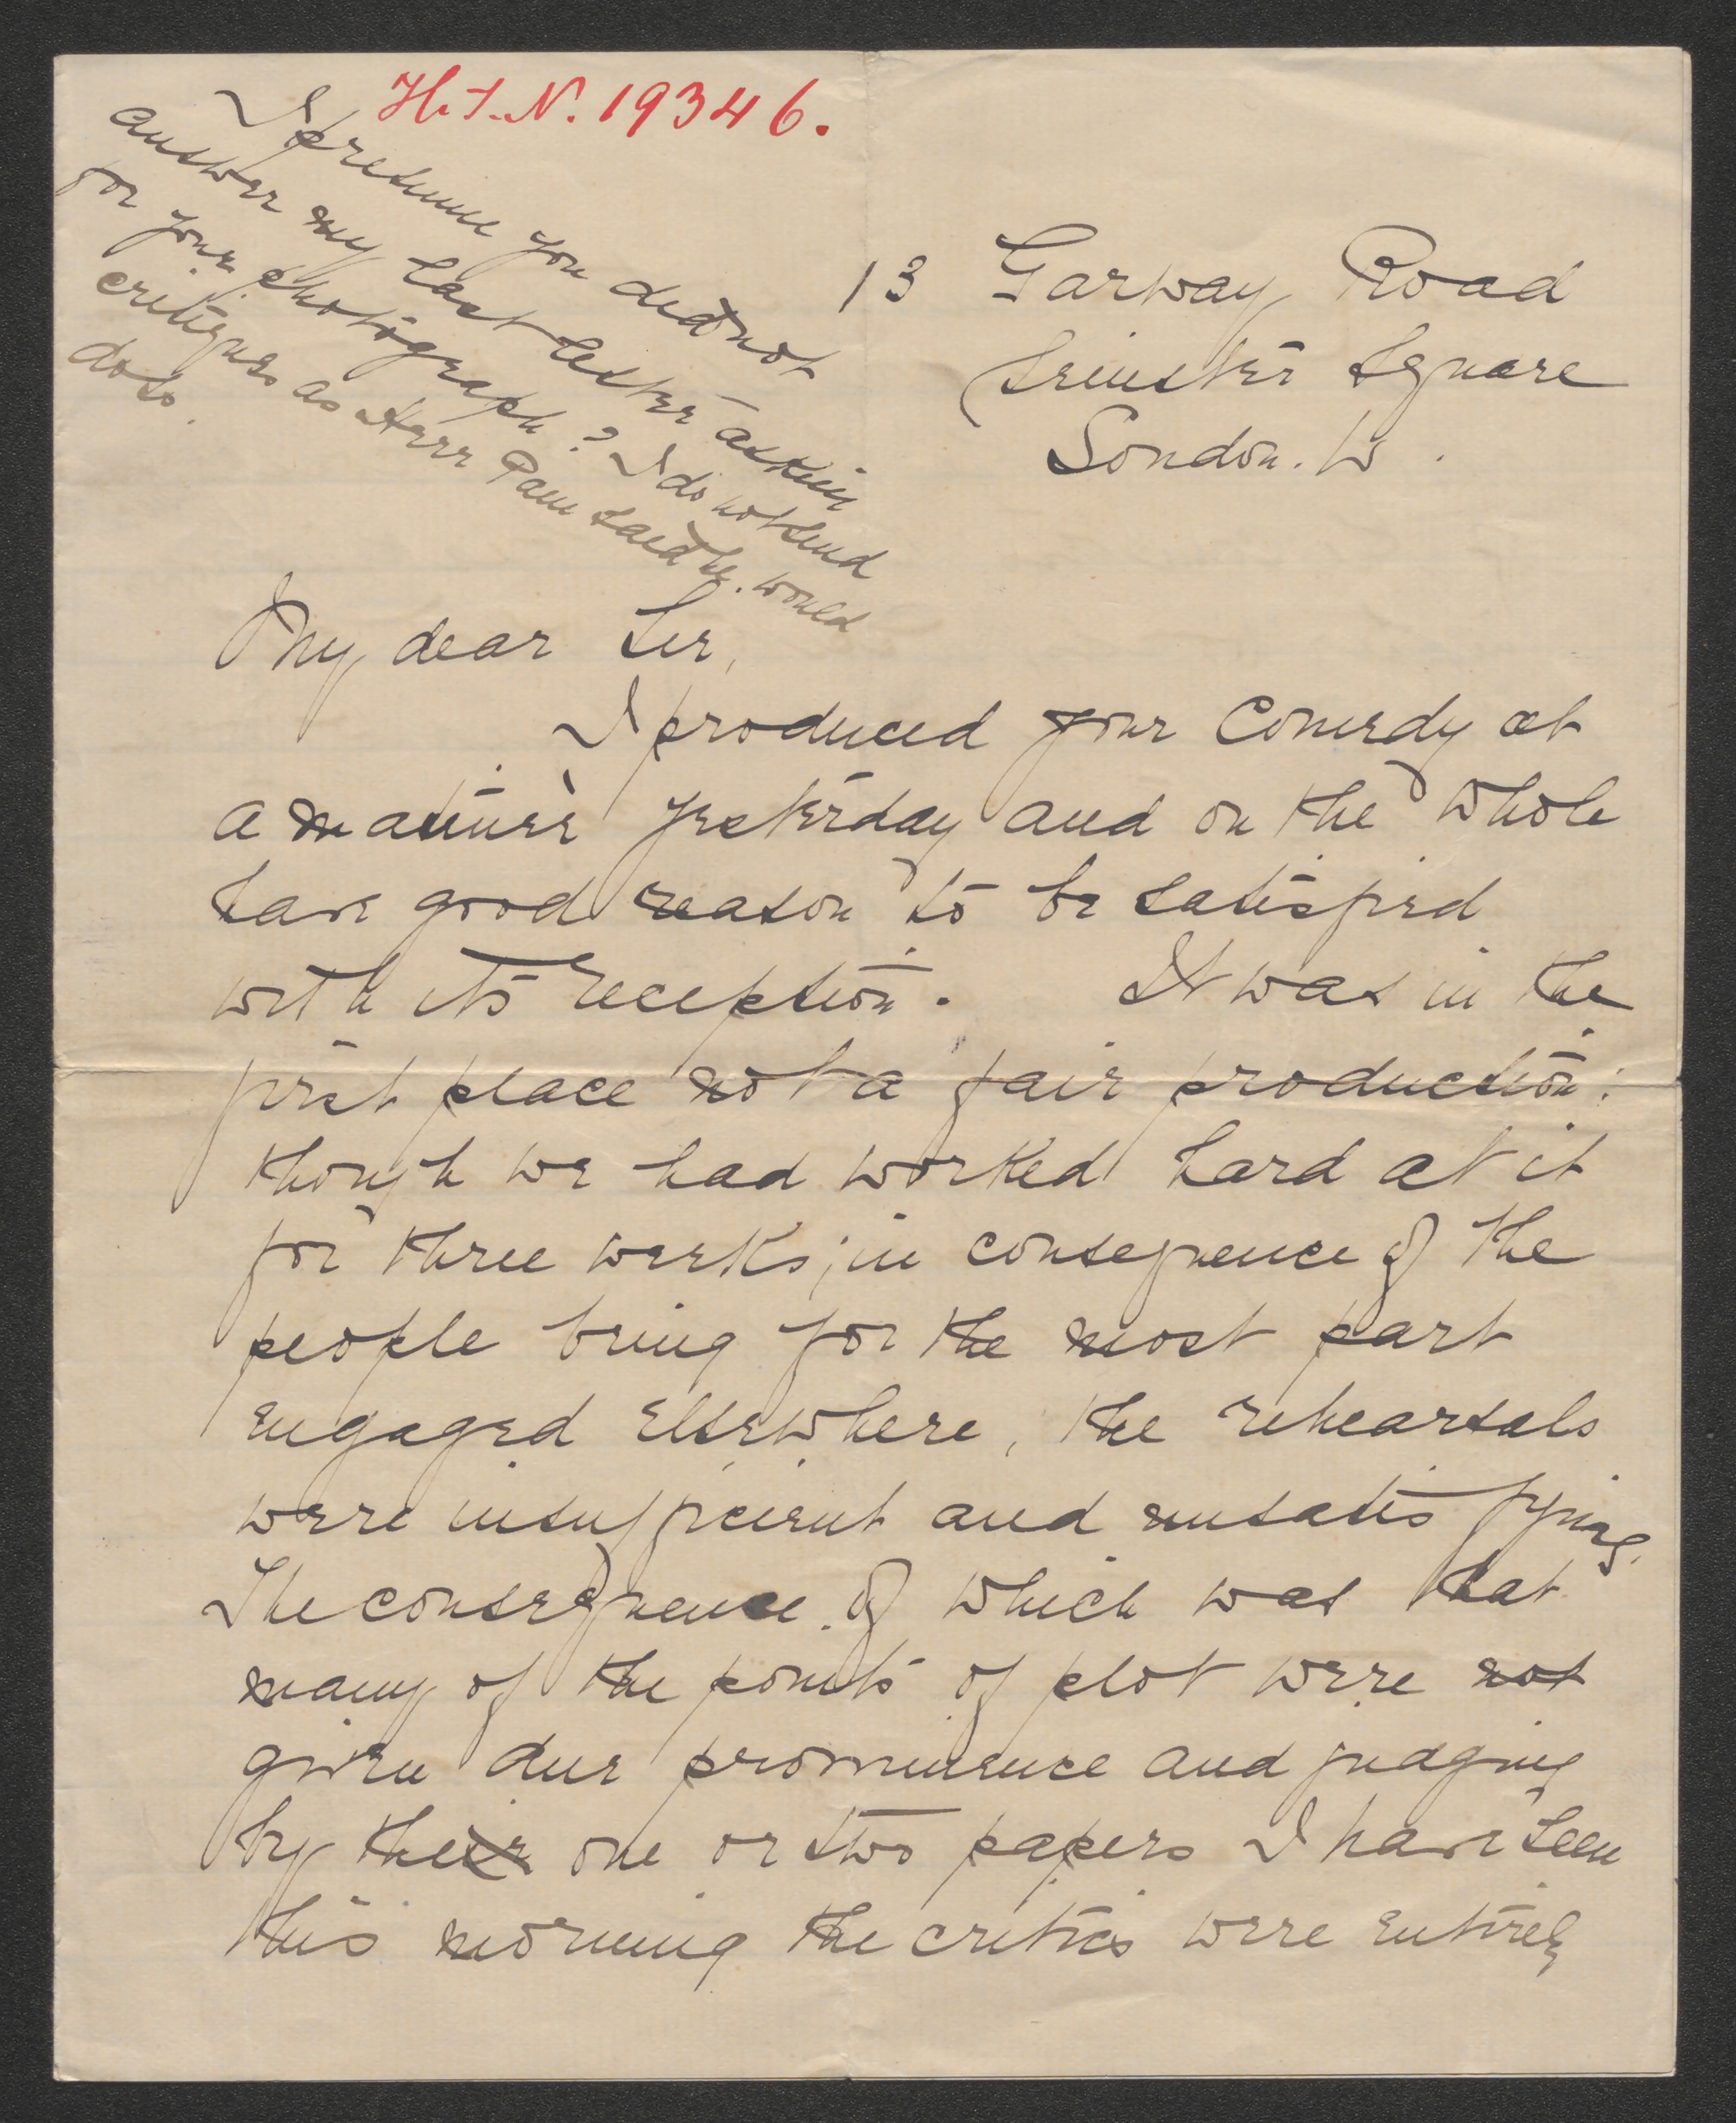 H.I.N. 19346.
I presume you did not
answer my last letter asking
for your photograph? I do not send
critiques as Herr Paul said he would
do so.
13 Garway Road
Leinster Square
London. W.
My dear Sir,
I produced your Comedy at
a matineè yesterday and on the whole
have good reason to be satisfied
with its reception. It was in the
first place not a fair production:
though we had worked hard at it
for three weeks; in consequence of the
people being for the most part
engaged elsewhere, the rehearsals
were insufficient and unsatisfying.
The consequence of which was that
many of the points of plot were not
given due prominence and judging
by their one or two papers I have seen
this morning the critics were entirely